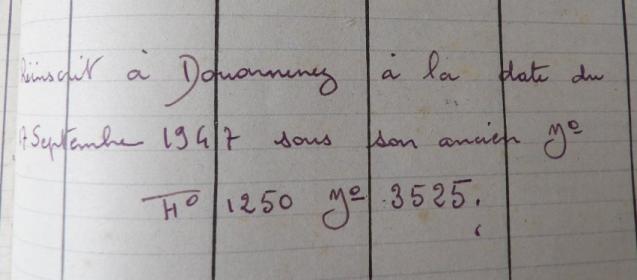 Réinscrit à Douarnenez à la date du
17 Septembre 1947 sous son ancien Nº
Fº 1250 Nº 3525.